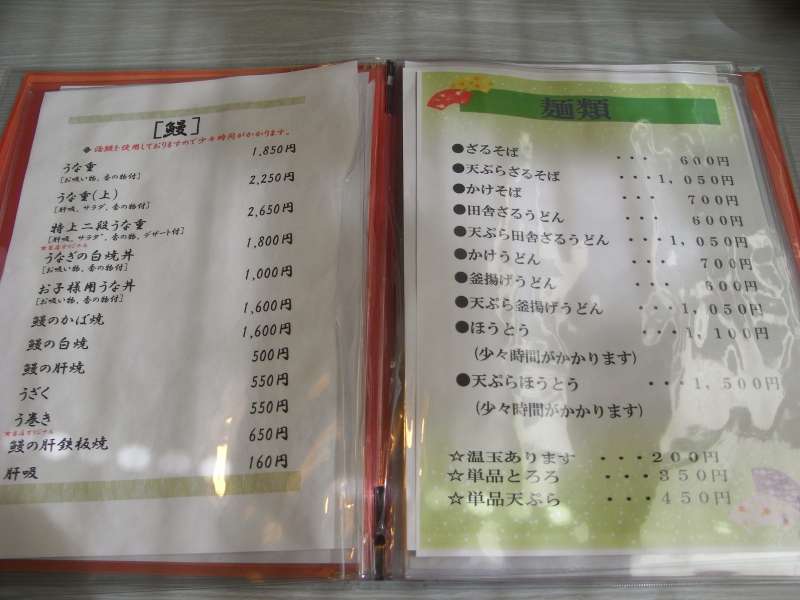 [鰻]
◆ 活鰻を使用しておりますので少々時間がかかります。
うな重 1,850円
[お吸い物、香の物付]
うな重(上) 2,250円
[肝吸、サラダ、香の物付]
特上二段うな重 2,650円
[肝吸、サラダ、香の物、デザート付]
★当店オリジナル
うなぎの白焼丼 1,800円
[お吸い物、香の物付]
お子様用うな丼 1,000円
[お吸い物、香の物付]
鰻のかば焼 1,600円
鰻の白焼 1,600円
鰻の肝焼 500円
うざく 550円
う巻き 550円
★当店オリジナル
鰻の肝鉄板焼 650円
肝吸 160円
麺類
●ざるそば ・・・ 600円
●天ぷらざるそば ・・・1,050円
●かけそば ・・・ 700円
●田舎ざるうどん ・・・ 600円
●天ぷら田舎ざるうどん ・・・1,050円
●かけうどん ・・・ 700円
●釜揚げうどん ・・・ 600円
●天ぷら釜揚げうどん ・・・1,050円
●ほうとう ・・・1,100円
(少々時間がかかります)
●天ぷらほうとう ・・・1,500円
(少々時間がかかります)
☆温玉あります ・・・200円
☆単品とろろ ・・・350円
☆単品天ぷら ・・・450円